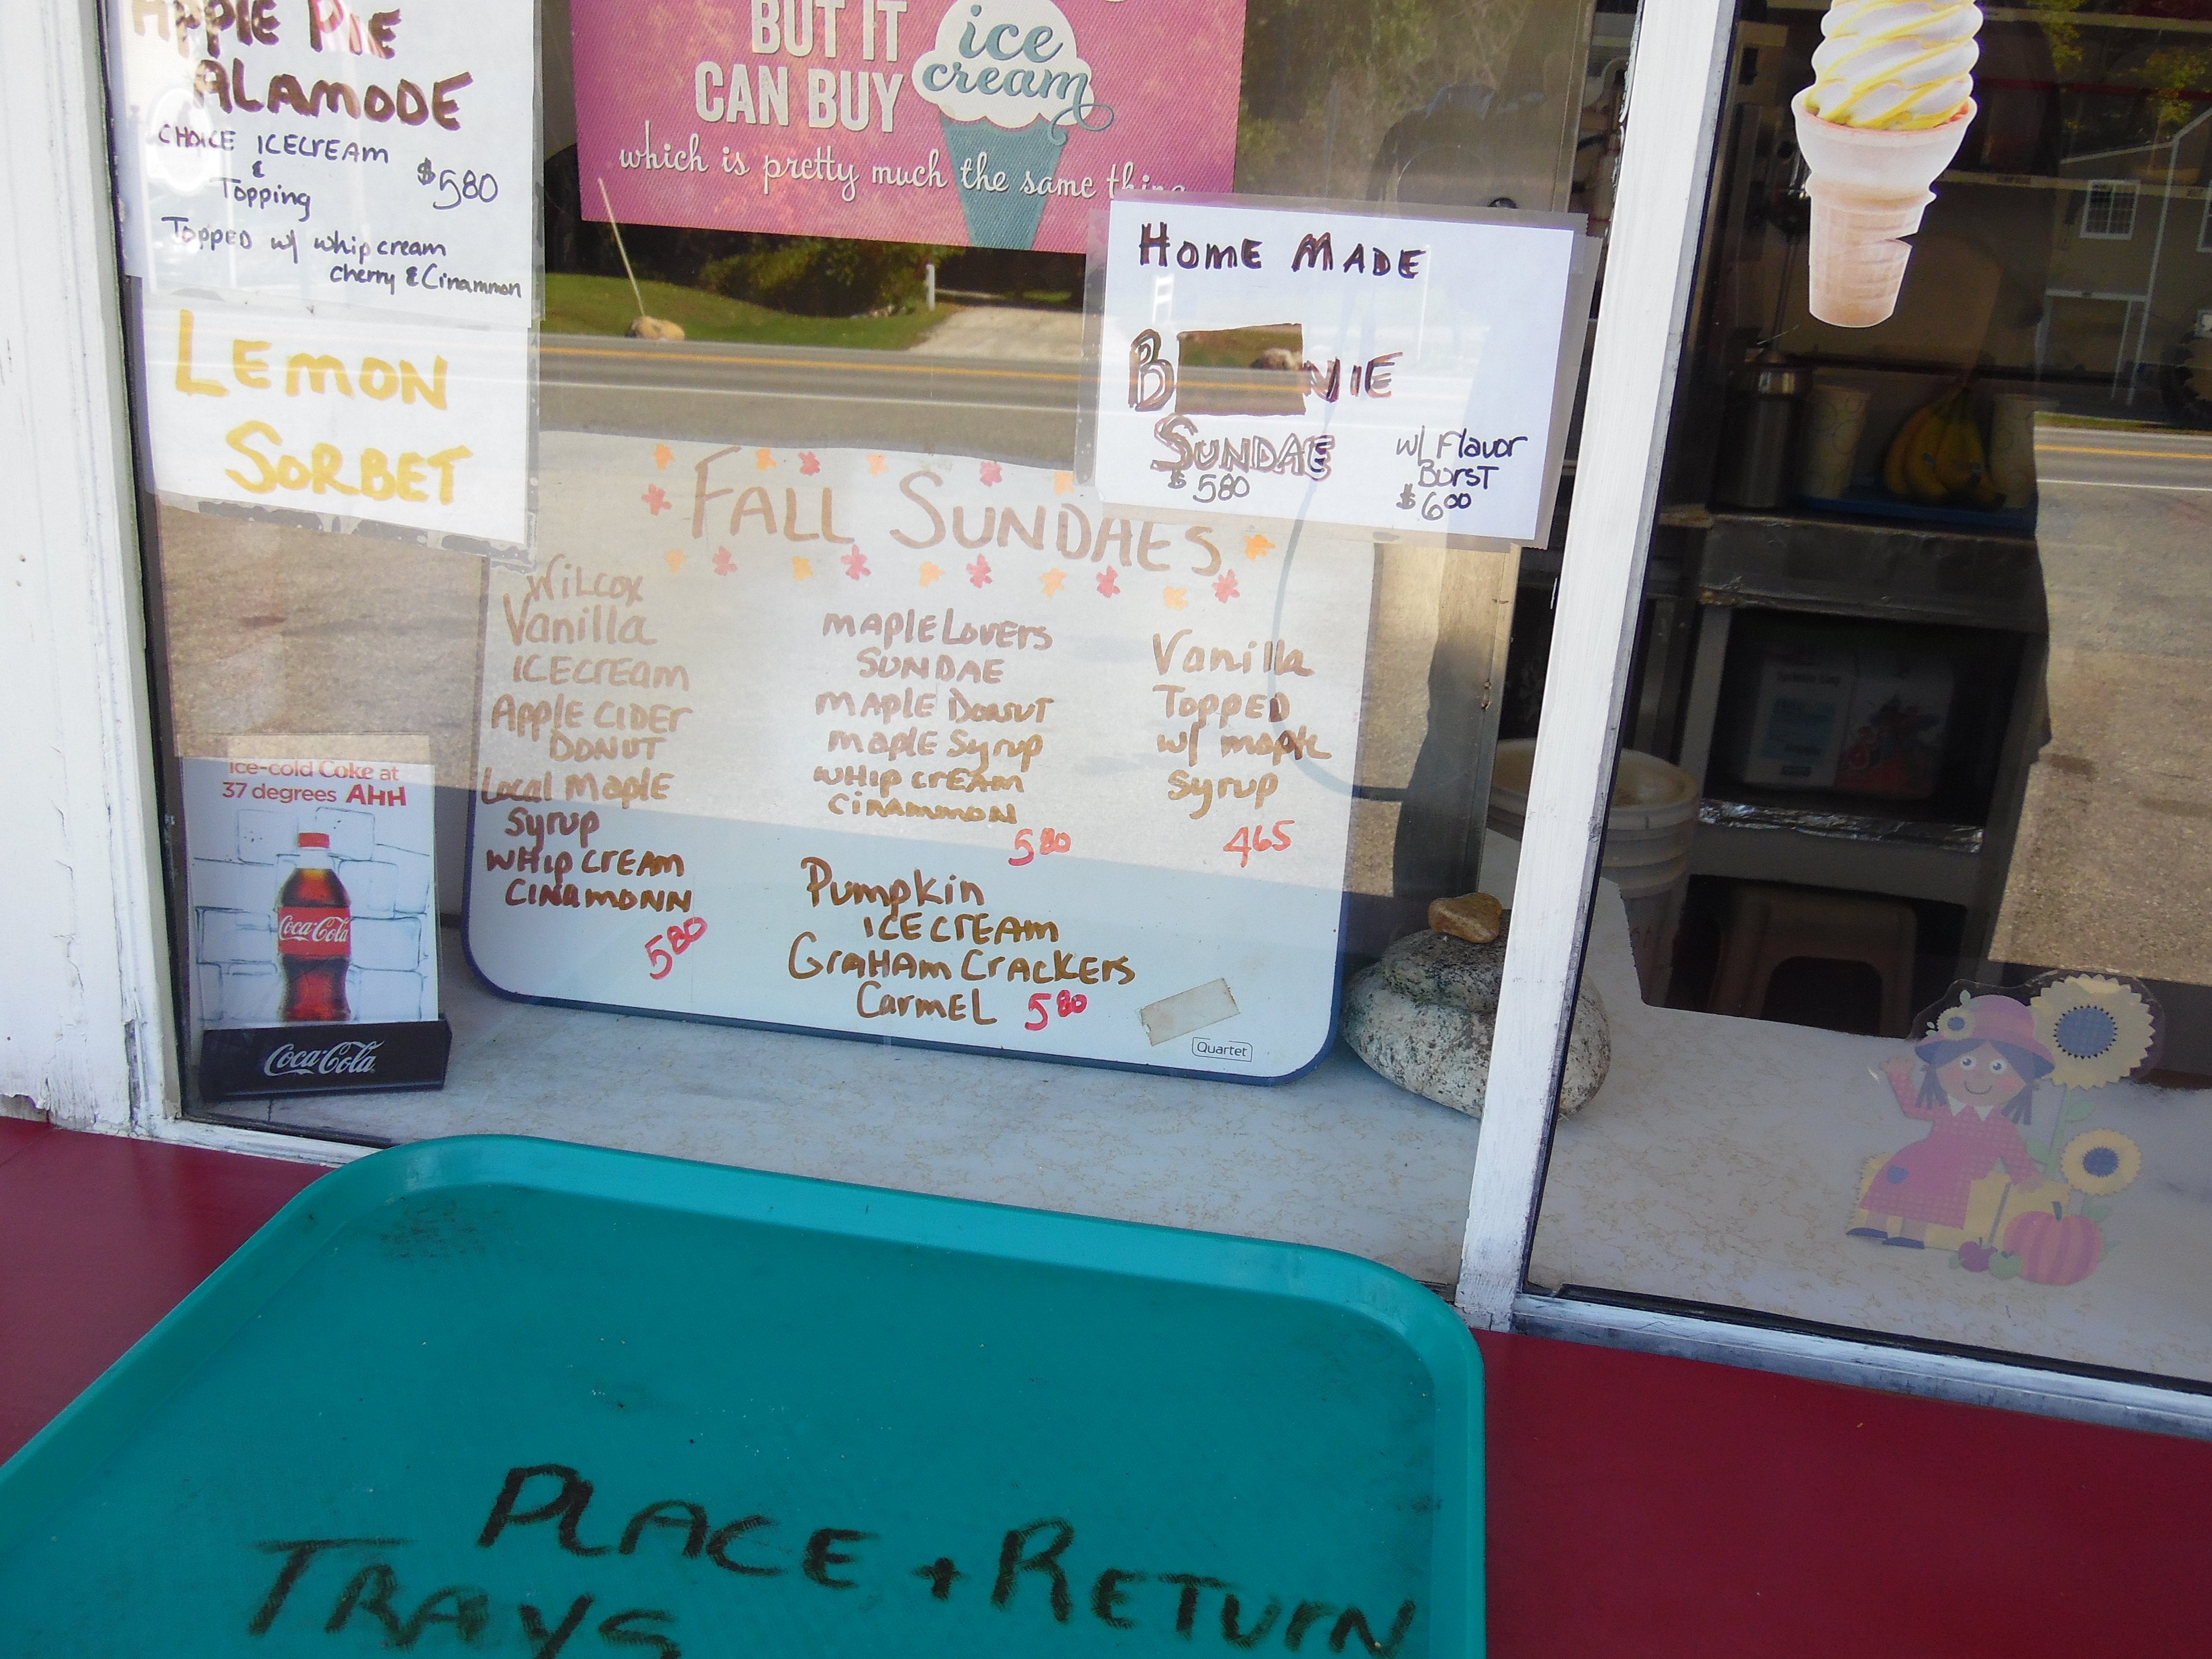 APPLE PIE
ALAMODE
CHOICE ICECREAM
&
Topping
$580
Topped w/ whip cream
cherry & Cinammon
LEMON
SORBET
BUT IT
CAN BUY
ice
cream
which is pretty much the same thing
HOME MADE
SUNDAE
$580
w/ Flavor
Burst
$600
FALL SUNDAES
WILCOX
Vanilla
ICECREAM
APPLE CIDER
DONUT
Local Maple
Syrup
WHIP CREAM
CINAMONN
580
MAPLE LOVERS
SUNDAE
MAPLE DONUT
MAPLE Syrup
WHIP CREAM
CINAMMON
580
Vanilla
TOPPED
w/ maple
Syrup
465
Pumpkin
ICE CREAM
GRAHAM CRACKERS
CARMEL 580
Quartet
Ice-cold Coke at
37 degrees AHH
Coca-Cola
Coca-Cola
PLACE + RETURN
TRAYS